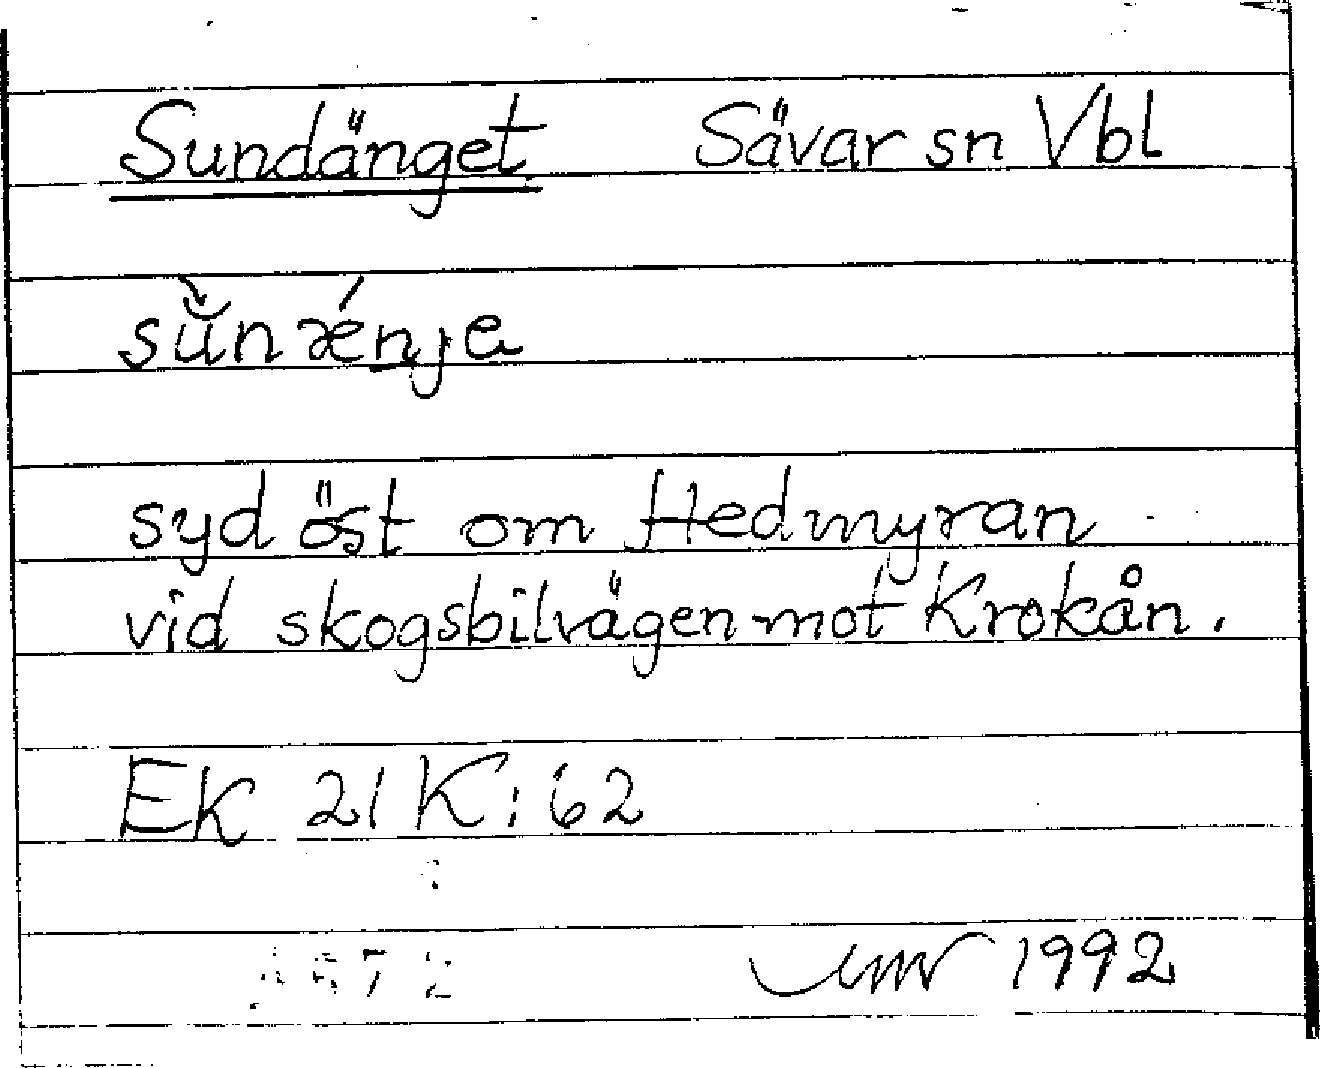 Sundänget Sävar sn Vbl
sŭ̀nǽnja
syd öst om Hedmyran
vid skogsbilvägen mot Krokån.
EK 21 K:62
1992